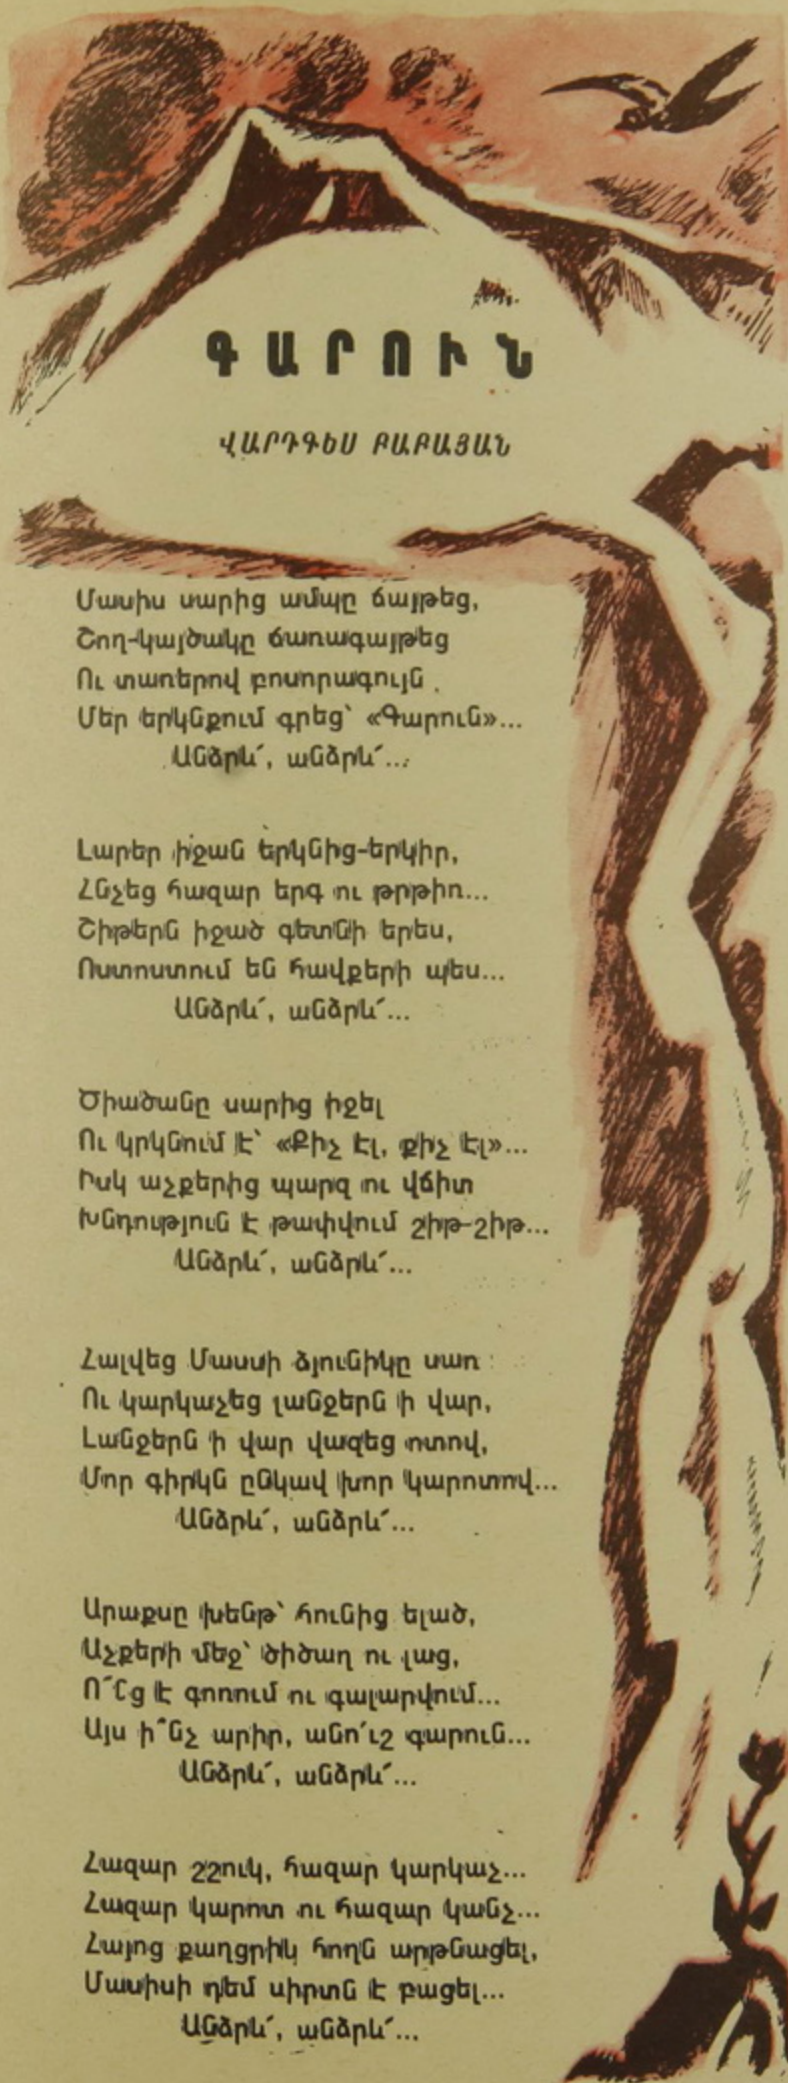 ԳԱՐՈՒՆ
ՎԱՐԴԳԵՍ ԲԱԲԱՅԱՆ
Մասիս սարից ամպը ճայթեց,
Շող-կայծակը ճառագայթեց
Ու տառերով բոսորագույն
Մեր երկնքում գրեց՝ «Գարուն»...
Անձրև՜, անձրև՜...
Լարեր իջան երկնից-երկիր,
Հնչեց հազար երգ ու թրթիռ...
Շիթերն իջած գետնի երես,
Ոստոստում են հավքերի պես...
Անձրև՜, անձրև՜...
Ծիածանը սարից իջել
Ու կրկնում է՝ «Քիչ էլ, քիչ էլ»...
Իսկ աչքերից պարզ ու վճիտ
Խնդություն է թափվում շիթ-շիթ...
Անձրև՜, անձրև՜...
Հալվեց Մասսի ձյունիկը սառ
Ու կարկաչեց լանջերն ի վար,
Լանջերն ի վար վազեց ոտով,
Մոր գիրկն ընկավ խոր կարոտով...
Անձրև՜, անձրև՜...
Արաքսը խենթ՝ հունից ելած,
Աչքերի մեջ՝ ծիծաղ ու լաց,
Ո՜նց է գոռում ու գալարվում...
Այս ի՞նչ արիր, անո՛ւշ գարուն...
Անձրև՜, անձրև՜...
Հազար շշուկ, հազար կարկաչ...
Հազար կարոտ ու հազար կանչ...
Հայոց քաղցրիկ հողն արթնացել,
Մասիսի դեմ սիրտն է բացել...
Անձրև՜, անձրև՜...